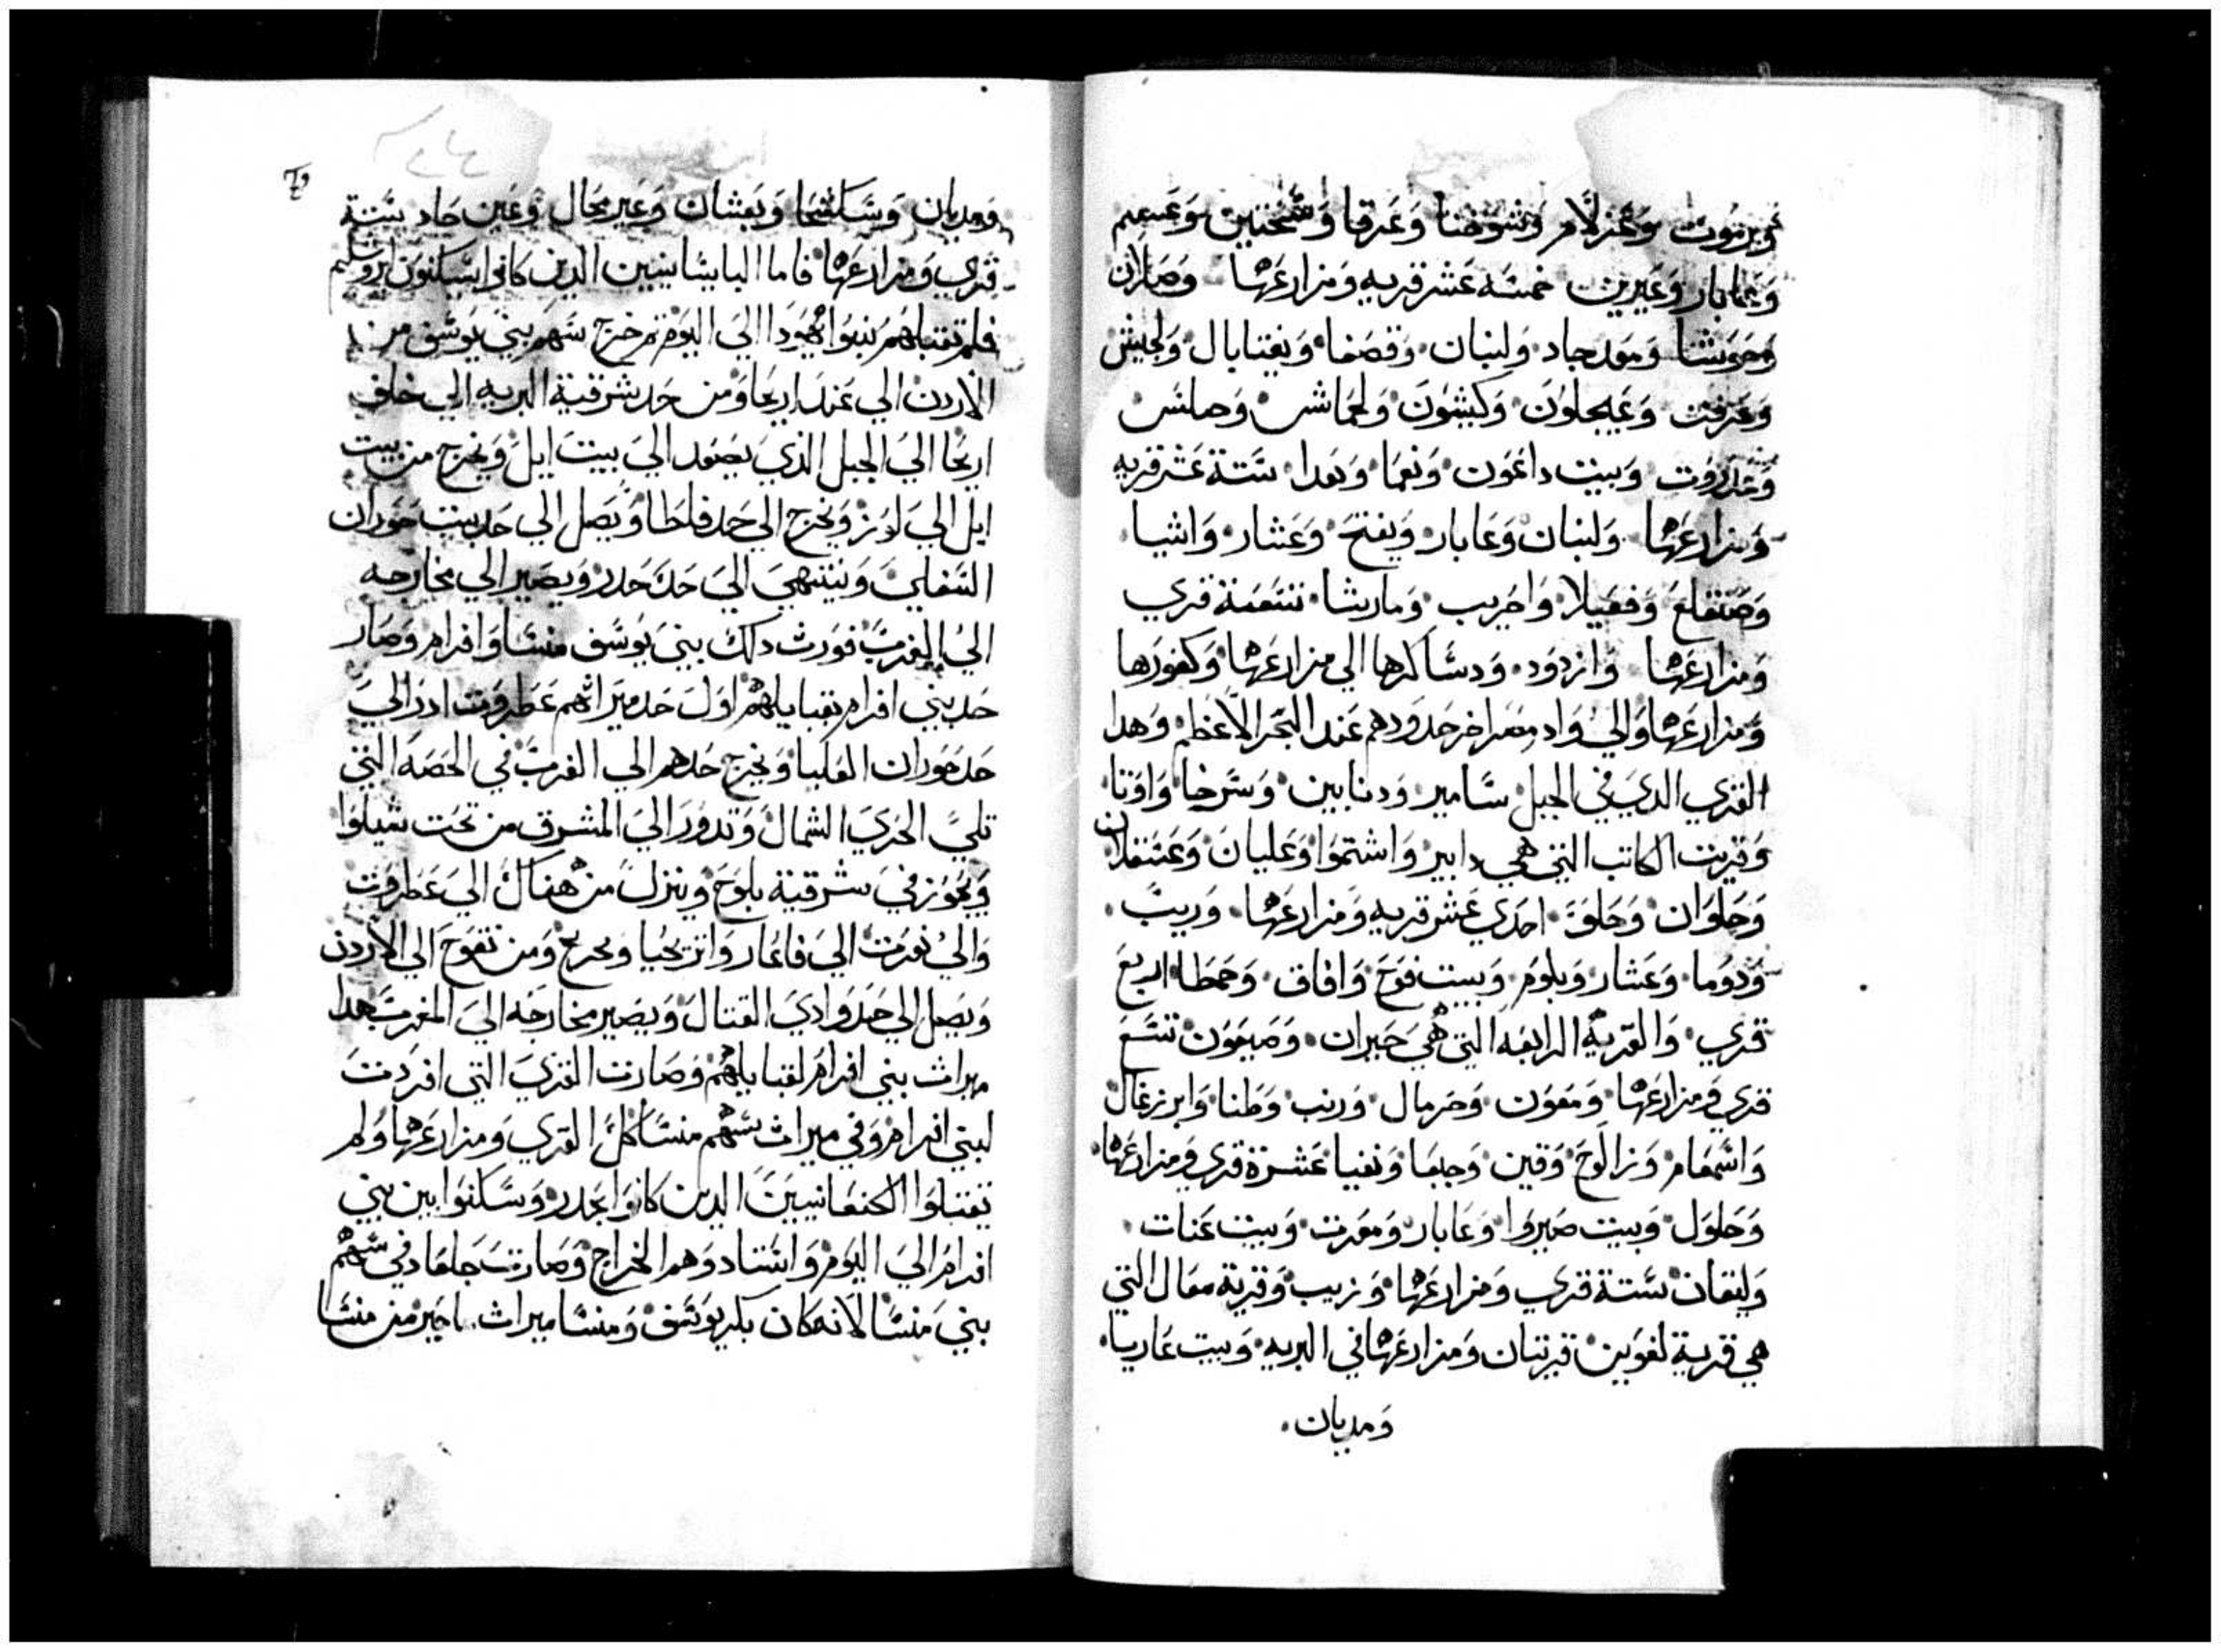 ويرموت وعزلام وشوخنا وعرقا وشختين وعيعم
وعابار وعيرين خمسه عشر قريه ومزارعها وصاران
وحويشنا ومعدجاد ولبنان وقصفا ويقتابال ولجيش
وعزقت وعيجلون وكيشون ولحماش وحلش
وغدروت وبيت داغون ونعما وبعدا ستة عشر قريه
ومزارعها ولبنان وعابار ويفتح وعشار واشيا
وصنقلع وففعيلا واجريب ومارشا تسعة قري
ومزارعها وازدود ودساكرها الي مزارعها وكفورها
ومزارعها والي واد مصر اخر حدودهم عند البحر الاعظم وهدا
القري الدي في الجبل سامير ودنابين وسرخا واوتا
وقريت الكاتب التي هي دابير واشتموا وعليان وعسقلان
وحلوان وحلوق احدي عشر قريه ومزارعها وريب
ودوما وعشار وبلوم وبيت فوح وافاق وحمطا اربع
قري والقرية الرابعه التي هي حبران وصيعون تسع
قري ومزارعها ومعون وخرمال ورنب وطنا وابرزغال
واشمعام وزالوح وقين وجبعا ونفيا عشرة قري ومزارعها
وحلول وبيت صيروا وعابار ومعرت وبيت عنات
وليتقان ستة قري ومزارعها وزبب وقرية معال التي
هي قرية لغوين قريتان ومزارعها في البريه وبيت عاريا
ومديان
ومديان وسكشحا وبعشان وعير محال وعين جاد ستة
قري ومزارعها فاما اليابسانيين الدين كانوا يسكنون يروشليم
فلم تقتلهم بنوا يهودا الي اليوم ثم خرج سهم بني يوسف من
الاردن الي عند اريحا ومن حد شرقية البريه الي خلف
اريحا الي الجبل الذي يصعد الي بيت ايل ويخرج من بيت
ايل الي لوز ويخرج الي حد فلطا ويصل الي حد بيت حوران
السفلي وينتهي الي حد حدر ويصير الي مخارجه
الي المغرب فورث دلك بني يوسف منسا وافرام وصار
حد بني افرام بقبايلهم اول حد ميراثهم عطروت ادر الي
حد حوران العليا ويخرج حدهم الي الغرب في الحصه التي
تلي الحري الشمال وتدور الي المشرق من تحت شيلوا
ويجوز في شرقية يلوح وينزل من هناك الي عطروت
والي نعرت الي فاعار واتريحيا ويخرج ومن تفوح الي الاردن
ويصل الي حد وادي القتال ويصير مخارجه الي المغرب هدا
ميراث بني افرام لقبايلهم وصارت القري التي افردت
لبني افرام وفي ميراث سهم منسا كل القري ومزارعها ولم
تقتلوا الكنعانيين الدين كانوا بجدر وسكنوا بين بني
افرام الي اليوم واستادوهم الخراج وصارت جلعاد في سهم
بني منسا لانه كان بكر يوسف ومنسا ميراث ماجير من منسا